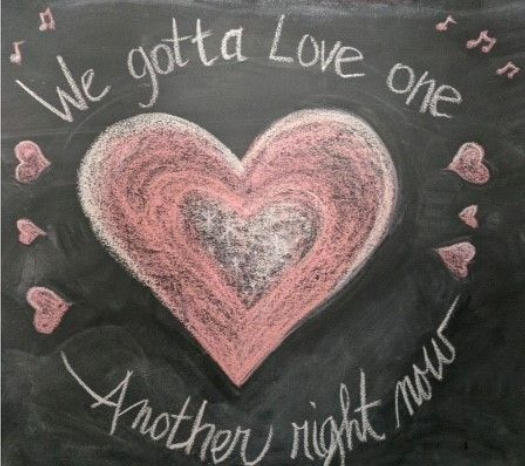 We gotta Love one
Another right now